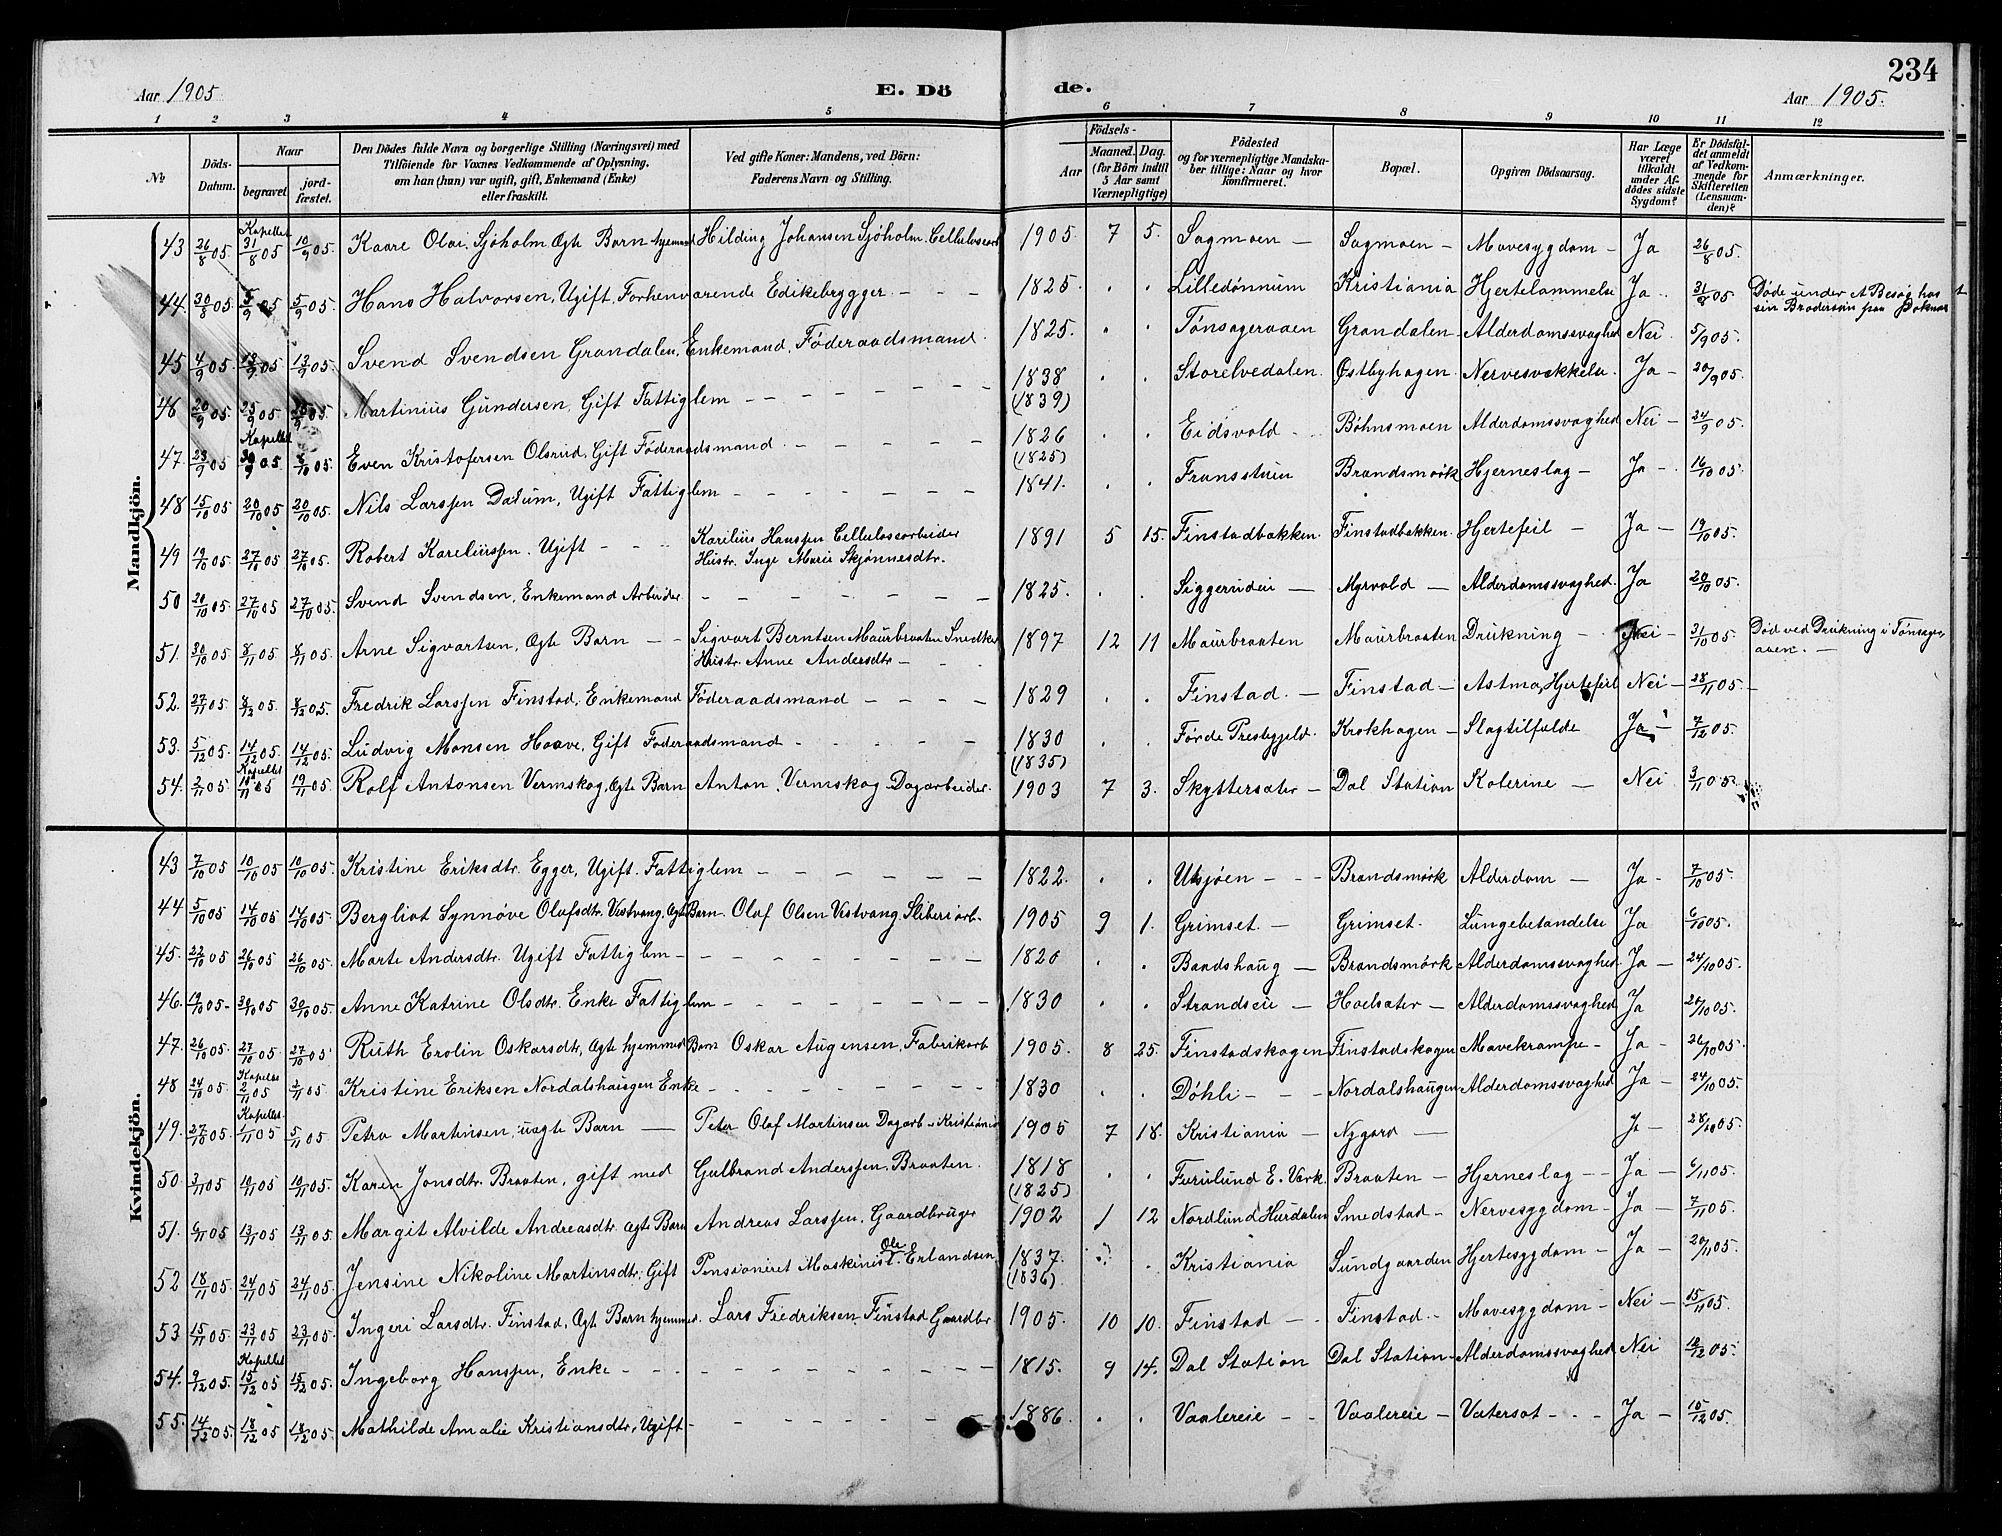 234
Aar 1905 E. Dö de. Aar 1905.
1 2 3 4 5 6 7 8 9 10 11 12
No
Döds-Datum.
Naar
begravet
jord-fæstet.
Den Dödes fulde Navn og borgerlige Stilling (Næringsvei) med
Tilföiende for Voxnes Vedkommende af Oplysning,
om han (hun) var ugift, gift, Enkemand (Enke)
eller fraskilt.
Ved gifte Koner: Mandens, ved Börn:
Faderens Navn og Stilling.
Födsels-
Aar
Maaned. Dag.
(for Börn indtil
5 Aar samt
Værnepligtige)
Födested
og for værnepligtige Mandska-
ber tillige: Naar og hvor
konfirmeret.
Bopæl.
Opgiven Dödsaarsag.
Har Læge
været
tilkaldt
under Af-
dödes sidste
Sygdom?
Er Dödsfal-
det anmeldt
af Vedkom-
mende for
Skifteretten
(Lensman-
den)?
Anmærkninger.
Mandkjön.
43 26/8 05 Kapellet 31/8 05 10/9 05 Kaare Olai Sjöholm Ægte Barn hjemmed Hilding Johansen Sjöholm. Cellulosearb 1905 7 5. Sagmoen — Sagmoen — Mavesygdom — Ja 26/8 05
44. 30/8 05 5/9 05 5/9 05 Hans Halvorsen, Ugift, Forhenværende Edikebrygger — — — 1825. . . Lilledønnum Kristiania Hjertelammelse Ja . 31/8 05 Døde under et Besøg hos
sin Brodersøn paa
45 4/9 05 13/9 05 13/9 05 Svend Svendsen Grandalen, Enkemand, Føderaadsmand. 1825. . . Tønsageraaen Grandalen Alderdomssvaghed Nei. 5/9 05.
46 20/9 05 25/9 05 25/9 05. Martinius Gundersen, Gift Fattiglem — — — 1838 (1839) . . Storelvedalen. Østbyhagen. Nervesvækkelse Ja — 20/9 05.
47. 23/9 05 Kapellet 30/9 05. 8/10 05. Even Kristofersen Olsrud, Gift Føderaadsmand — — — 1826 (1825) . . Eidsvold — Bøhnsmoen Alderdomssvaghed Nei — 24/9 05.
48 15/10 05 20/10 05 20/10 05. Nils Larssen Dalum, Ugift Fattiglem — — — 1841. . . Fransstuen Brandsmørk Hjerneslag — Ja — 16/10 05
49 19/10 05 27/10 05 27/10 05. Robert Kareliussen. Ugift — — Karelius Hanssen Cellulosearbeider
Hustr. Inge Marie Skjønnesdtr. 1891 5 15. Finstadbakken. Finstadbakken. Hjertefeil — Ja — 19/10 05
50 20/10 05. 27/10 05 27/10 05. Svend Svendsen, Enkemand Arbeider — — — 1825. . . Siggerudeie — Myrvold — Alderdomssvaghed. Ja 20/10 05.
51. 30/10 05 8/11 05 8/11 05 Arne Sigvartsen, Ægte Barn — — Sigvart Berntsen Maurbraaten Snedker
Hustr. Anne Andersdtr — 1897 12 11 Maurbraaten Maurbraaten Drukning — Nei — 31/10 05 Død ved Drukning i Tønsager-
aaen. —
52. 27/11 05. 8/12 05 8/12 05. Fredrik Larssen Finstad, Enkemand Føderaadsmand — — — 1829 . . Finstad. — Finstad — Astma, Hjertefeil Nei — 28/11 05. —
53. 5/12 05. 14/12 05. 14/12 05. Ludvig Monsen Haave, Gift Føderaadsmand — — 1830 (1835) . . Førde Prestegjeld. Krokhagen — Slagtilfælde Ja — 7/12 05.
54. 2/11 05 Kapellet 10/11 05 19/11 05. Rolf Antonsen Vermskog, Ægte Barn Anton Vermskog Dagarbeider. 1903 7 3. Skyttersæter — Dal Station Katerine — Nei 3/11 05.
Kvindekjön.
43 7/10 05 10/10 05 10/10 05. Kristine Eriksdtr. Egger, Ugift. Fattiglem — — — 1822. . . Utsjøen — — Brandsmørk Alderdom — Ja — 7/10 05.
44 5/10 05 14/10 05 14/10 05. Bergliot Synnøve Olafsdtr. Vestvang, Ægte Barn. Olaf Olsen Vestvang Sliberiarb. 1905 9 1. Grimset. — Grimset. Lungebetændelse Ja 6/10 05.
45. 22/10 05 26/10 05 26/10 05. Marte Andersdtr. Ugift Fattiglem — — — 1820 . . Baadshaug — Brandsmørk Alderdomssvaghed Ja — 24/10 05.
46. 19/10 05 — 30/10 05 30/10 05. Anne Katrine Olsdtr. Enke Fattiglem — — — 1830 . . Strandseie — Hoelsæter — Alderdomssvaghed Ja 20/10 05.
47. 26/10 05. 27/10 05 27/10 05 Ruth Erolin Oskarsdtr, Ægte hjemmed Barn Oskar Augensen, Fabrikarb 1905. 8 25. Finstadskogen Finstadskogen Mavekrampe — Ja — 26/10 05.
48 24/10 05. Kapellet 2/11 05 2/11 05. Kristine Eriksen Nordalshaugen Enke — — — 1830 . . Døhli — — Nordalshaugen Alderdomssvaghed Ja — 24/10 05.
49. 27/10 05. Kapellet. 1/11 05 5/11 05 Petra Martinsen, uægte Barn — Peter Olaf Martinsen Dagarb. i Kristiania 1905 7 18. Kristiania — Nygard — Ja — 28/10 05
50 3/11 05 10/11 05 10/11 05. Karen Jonsdtr. Braaten, gift med Gulbrand Anderssen, Braaten. 1818 (1825) . . Furulund E. Værk. Braaten — Hjerneslag — — Ja — 6/11 05.
51. 6/11 05 13/11 05 13/11 05. Margit Alvilde Andreasdtr. Ægte Barn Andreas Larssen, Gaardbruger 1902 1 12 Nordlund Hurdalen Smedstad — Nervesygdom — Ja — 7/11 05.
52 18/11 05. 24/11 05 24/11 05. Jensine Nikoline Martinsdtr. Gift Pensioneret Maskinist Ole Erlandsen 1837. (1836) . . Kristiania Sundgaarden Hjertesygdom — Ja — 20/11 05.
53 15/11 05. 23/11 05 23/11 05. Ingeri Larsdtr. Finstad, Ægte Barn hjemmed. Lars Fredriksen Finstad Gaardbr. 1905. 10 10. Finstad — — Finstad. — Mavesygdom — Nei — 15/11 05.
54. 9/12 05. Kapellet 15/12 05 15/12 05. Ingeborg Hanssen, Enke — — — 1815. 9 14. Dal Station Dal Station. Alderdomssvaghed Nei 10/12 05.
55. 14/12 05. 18/12 05 18/12 05. Mathilde Amalie Kristiansdtr, Ugift — — — 1886. . . Vaalereie — — Vaalereie — Vatersot — — Ja — 15/12 05.